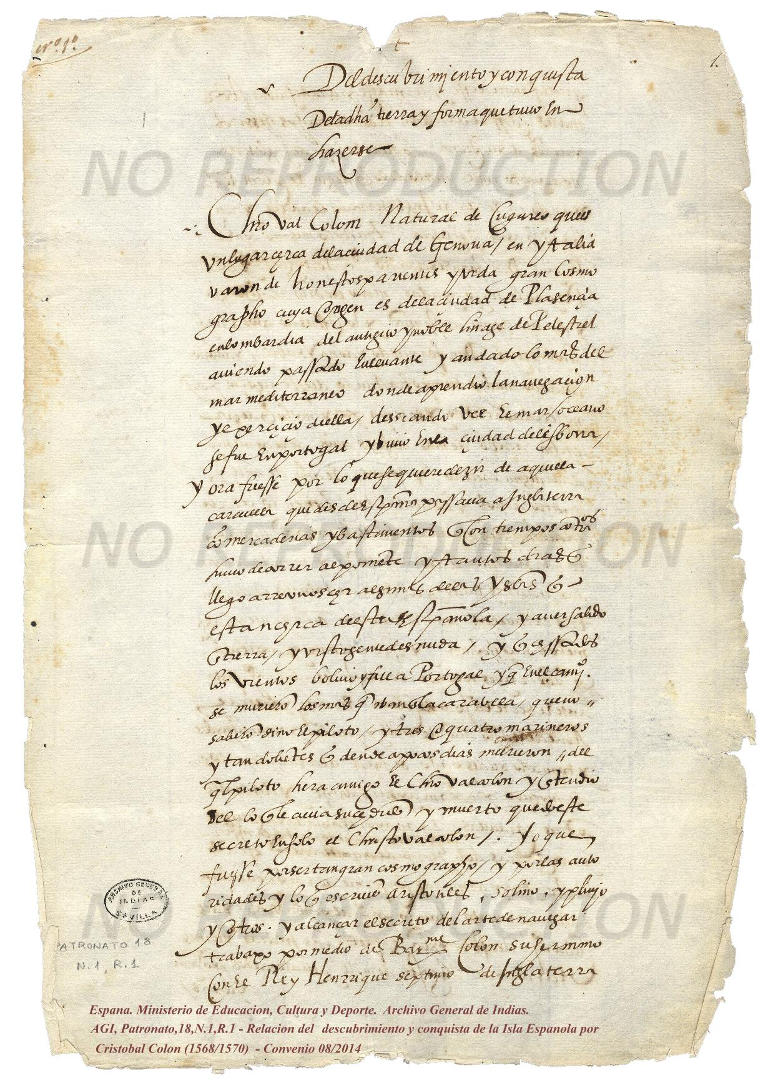 nº 1º
1.
Del descubrimiento y conquista
De la dha tierra y forma que tuvo En
hazerse
Chroval Colom Natural de Cugureo que es
Un lugar cerca de la ciudad de Genova / en ytalia
varon de honestos parientes y vida gran Cosmo
grapho cuya origen es de la ciudad de Plasençia
en lombardia del antiguo y noble linage de Pelestrel
aviendo passado En levante y andado lo mas del
mar mediterraneo donde aprendio la navegaçion
y exerciçio de ella / desseando ver El mar oceano
se fue En portugal y bivio En la ciudad de lisbona /
y ora fuesse por lo que se quiere dezir de aquella
caravela que desde españa passava a Inglaterra
co mercaderias y bastimentos q con tiempos
huvo de correr al poniente y tantos dias q
llego a reconoscer algunas de las yslas q
esta nesta española / y aver salido
a tierra / y visto gente desnuda / y q
los vientos bolvio y fue a Portugal y q En el cami.
se murierō los mas q en la caravela, que no
salierō sino El piloto / y tres o quatro marineros
y tan dolientes q dende a pocos dias murieron / del
ql piloto hera amigo El Chroval colon y Entendio
del lo q le avia suçedido / y muerto quedo este
secreto En solo el Christoval colon /. y o que
fuesse por ser tan gran cosmographo / y por las auto
ridades y lo q escrive Aristotiles, Solino, y plinio
y otros. y alcançar el secreto del arte de navegar
trabajo por medio de Barme Colon su hermano
Con El Rey Henrique septimo de Inglaterra
ARCHIVO GENERAL
DE
INDIAS
SEVILLA
PATRONATO 18
N.1, R.1
NO REPRODUCTION
NO REPRODUCTION
NO REPRODUCTION
Espana. Ministerio de Educacion, Cultura y Deporte. Archivo General de Indias.
AGI, Patronato,18,N.1,R.1 - Relacion del descubrimiento y conquista de la Isla Espanola por
Cristobal Colon (1568/1570) - Convenio 08/2014